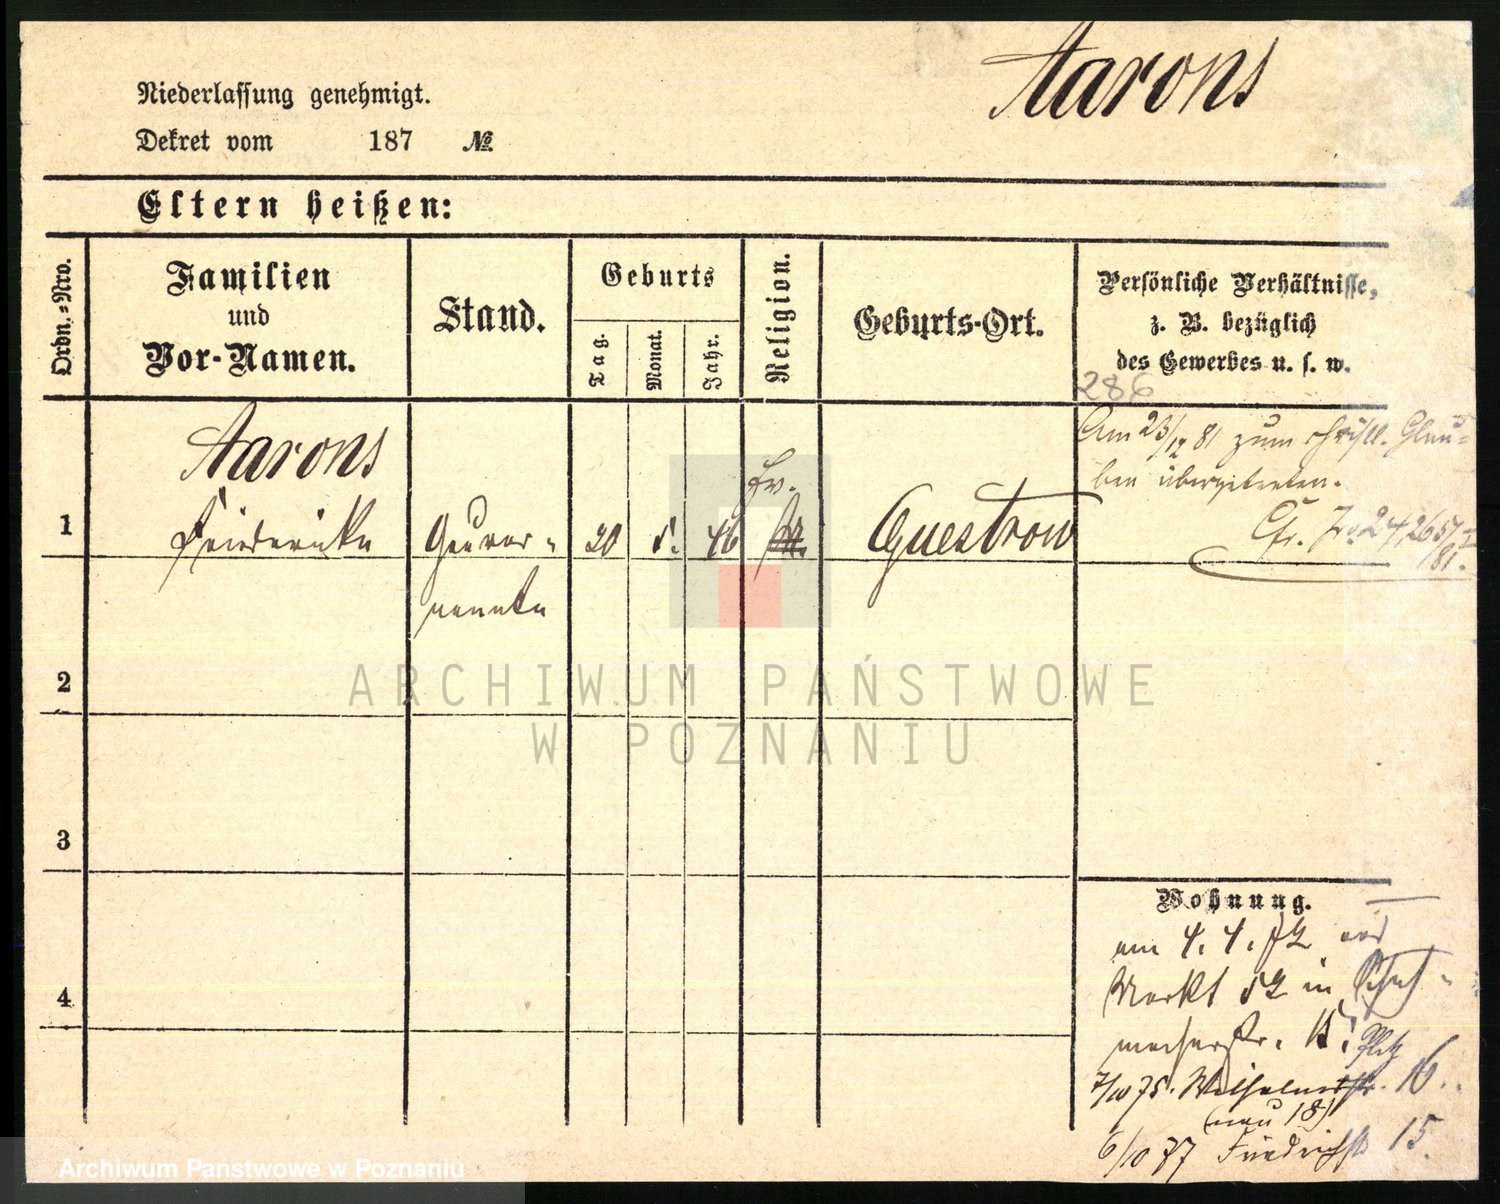 Aarons
Niederlassung genehmigt.
Dekret vom 187 №
Eltern heißen:
Ordn.=Nro.
Familien
und
Vor-Namen.
Stand.
Geburts
Tag.
Monat.
Jahr.
Religion.
Geburts-Ort.
Persönliche Verhältnisse,
z. B. bezüglich
des Gewerbes u. s. w.
286
1
Aarons
Friedericke
Gouver-
nannte
20
5.
46
Ev.
M.
Guestrow
Am 23/12 81 zum christl. Glau=
ben übergetreten.
Cfr.
81.
2
3
4
ARCHIWUM PAŃSTWOWE
W POZNANIU
Wohnung.
am 4. 4. 72 von
Markt 52 in Schuh-
macherstr.
Platz
7/10 75. Wilhelmsstr. 16.
(neu 18)
6/10 77 Friedrichstr 15.
Archiwum Państwowe w Poznaniu